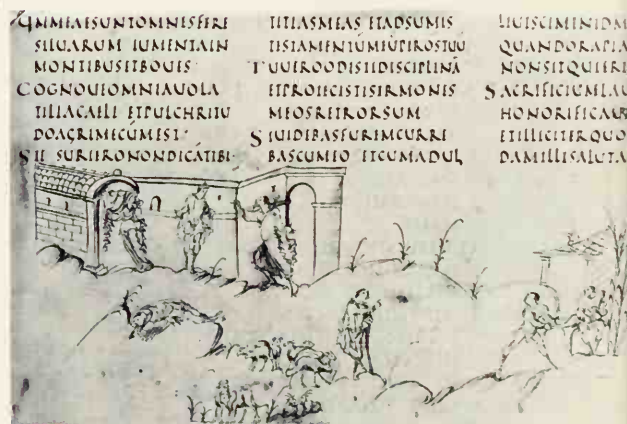 QNMEAESUNTOMNESFERE
SILUARUM IUMENTAIN
MONTIBUSETBOUES·
COGNOUIOMNIAUOLA
TILIACAELI ETPULCHRITU
DOAGRIMECUMEST·
SIESURIERONONDICATIBI·
TITIASMEAS ETADSUMIS
TESTAMENTŪMEŪPEROSTUU
TUUEROODISTIDISCIPLINĀ
ETPROIECISTISERMONES
MEOSRETRORSUM
SIUIDEBASFUREMCURRE
BASCUMEO ETCUMADUL
LIUISCIMINIDM
QUANDORAPIA
NONSITQUIERI
SACRIFICIUMLAU
HONORIFICAB
ETILLICITERQUO
DAMILLISALUTA